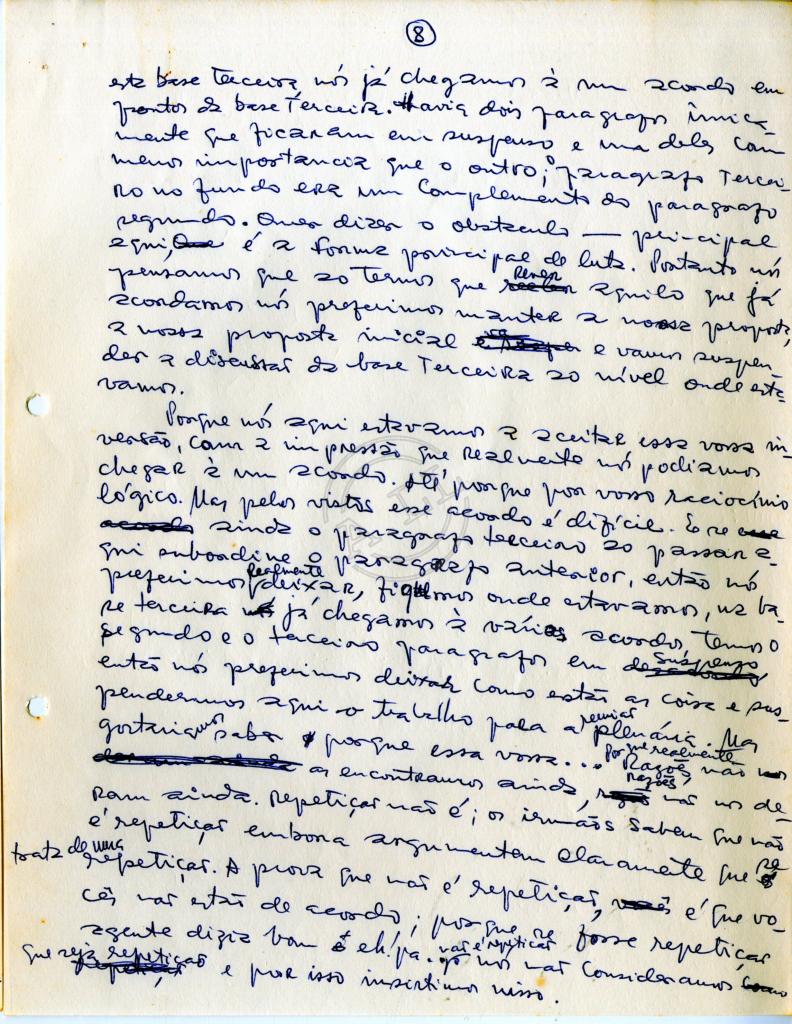 8
esta base terceira, nós já chegamos à um acordo em
pontos da base terceira. Havia dois paragrafos única-
mente que ficaram em suspenso e um deles com
menos importancia que o outro; o paragrafo tercei-
ro no fundo era um complemento do paragrafo
segundo. Quer dizer o obstaculo — principal
aqui, é a forma principal de luta. Portanto nós
pensamos que ao termos que rever aquilo que já
acordamos nós preferimos manter a nossa proposta,
a nossa proposta inicial e vamos suspen-
der a discussão da base terceira ao nível onde está-
vamos.
Porque nós aqui estavamos a aceitar essa vossa in-
versão, com a impressão que realmente nós podiamos
chegar à um acordo. Até porque por vosso raciocínio
lógico. Mas pelos vistos esse acordo é difícil. E se
ainda o paragrafo terceiro ao passar a-
qui subordine o paragrafo anterior, então nós
preferimos realmente deixar, fiquemos onde estavamos, na ba-
se terceira já chegamos à vários acordos, temos o
segundo e o terceiro paragrafos em suspenso
então nós preferimos deixar como estão as coisa e sus-
pendermos aqui o trabalho para a reunião plenária. Mas
gostariamos saber porque essa vossa... Porque realmente Razões não
as encontramos ainda, razões não nos de-
ram ainda. Repetição não é; os irmãos sabem que não
é repetição embora argumentem claramente que se
trata de uma repetição. A prova que não é repetição, é que vo-
cês não estão de acordo; porque se fosse repetição
agente digia bom é eh! pa. não é repetição nós não consideramos
que seja repetição e por isso insistimos nisso.